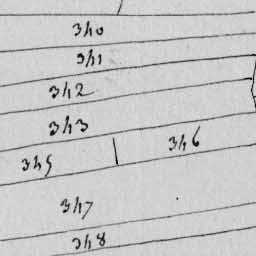 340
341
342
343
345
346
347
348